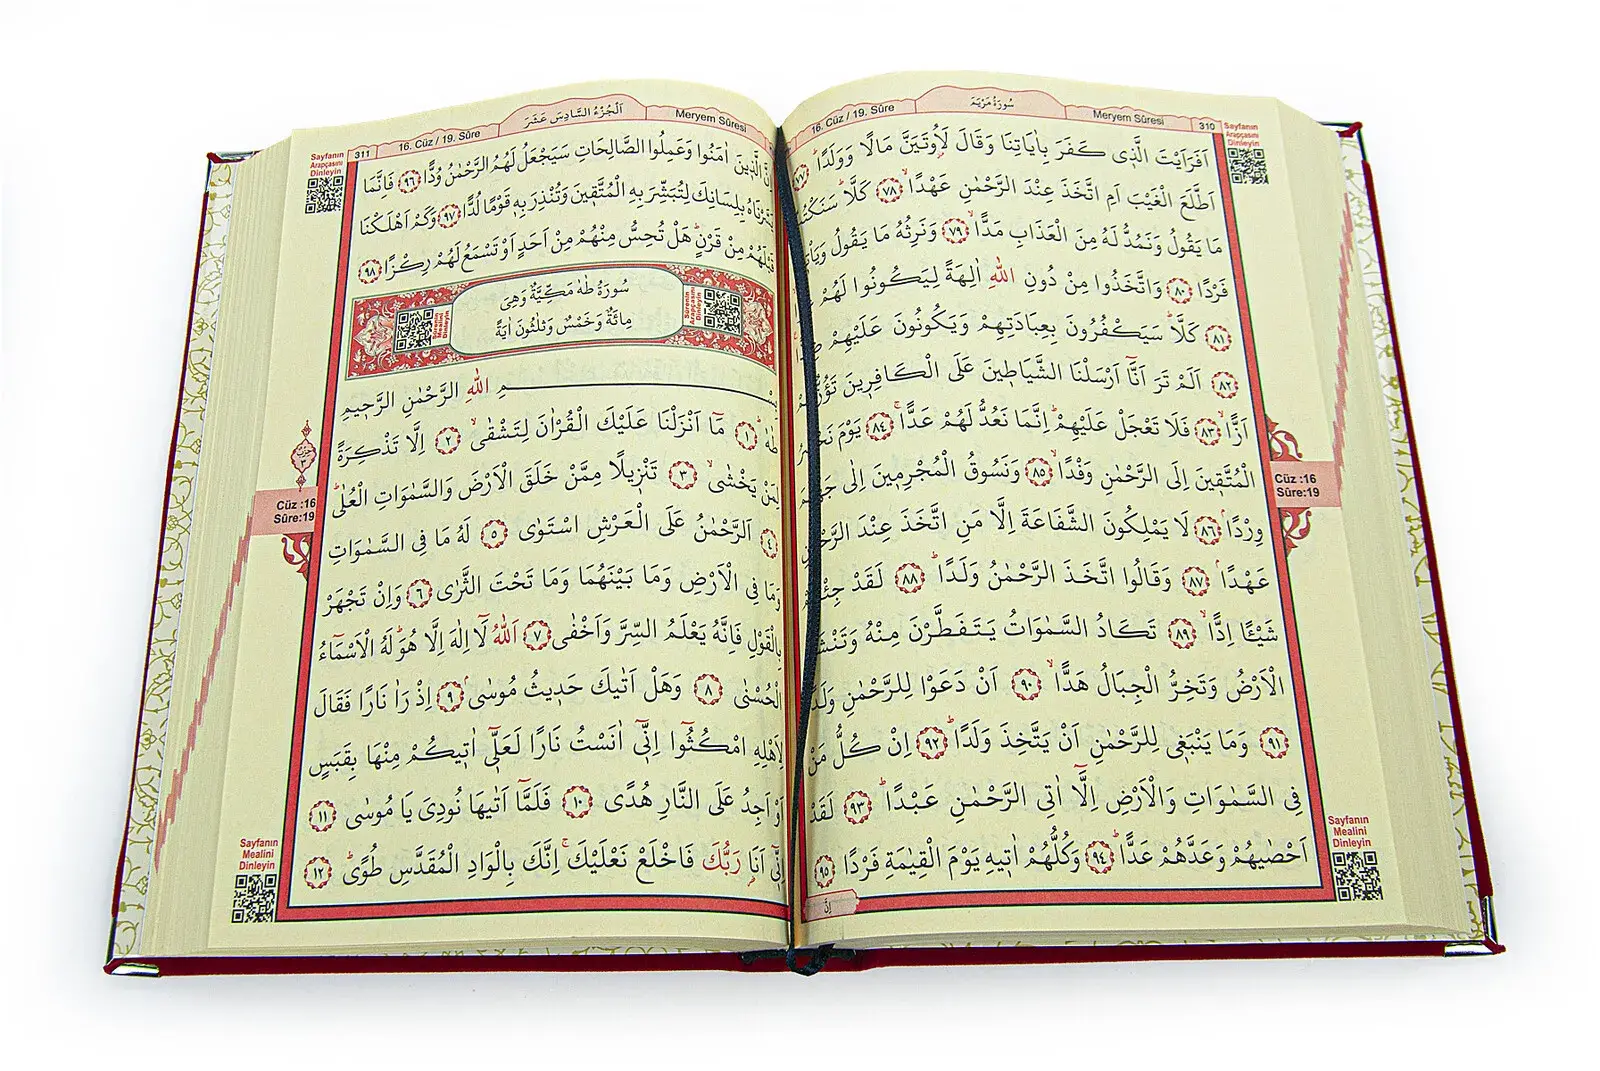 16. Cüz / 19. Sûre
سُورَةُ مَرْيَمَ
Meryem Sûresi
310
Sayfanın
Arapçasını
Dinleyin
اَفَرَاَيْتَ الَّذٖى كَفَرَ بِاٰيَاتِنَا وَقَالَ لَاُوتَيَنَّ مَالًا وَوَلَدًاؕ ﴿٧٧﴾
اَطَّلَعَ الْغَيْبَ اَمِ اتَّخَذَ عِنْدَ الرَّحْمٰنِ عَهْدًاۙ ﴿٧٨﴾ كَلَّاؕ
مَا يَقُولُ وَنَمُدُّ لَهُ مِنَ الْعَذَابِ مَدًّاۙ ﴿٧٩﴾ وَنَرِثُهُ مَا يَقُولُ
فَرْدًا ﴿٨٠﴾ وَاتَّخَذُوا مِنْ دُونِ اللّٰهِ اٰلِهَةً لِيَكُونُوا لَهُمْ
﴿٨١﴾ كَلَّاؕ سَيَكْفُرُونَ بِعِبَادَتِهِمْ وَيَكُونُونَ عَلَيْهِمْ
﴿٨٢﴾ اَلَمْ تَرَ اَنَّٓا اَرْسَلْنَا الشَّيَاطٖينَ عَلَى الْكَافِرٖينَ
اَزًّاۙ ﴿٨٣﴾ فَلَا تَعْجَلْ عَلَيْهِمْؕ اِنَّمَا نَعُدُّ لَهُمْ عَدًّاۚ ﴿٨٤﴾ يَوْمَ
الْمُتَّقٖينَ اِلَى الرَّحْمٰنِ وَفْدًاۙ ﴿٨٥﴾ وَنَسُوقُ الْمُجْرِمٖينَ اِلٰى
وِرْدًاۘ ﴿٨٦﴾ لَا يَمْلِكُونَ الشَّفَاعَةَ اِلَّا مَنِ اتَّخَذَ عِنْدَ
عَهْدًاۘ ﴿٨٧﴾ وَقَالُوا اتَّخَذَ الرَّحْمٰنُ وَلَدًاؕ ﴿٨٨﴾ لَقَدْ
شَيْـًٔا اِدًّاۙ ﴿٨٩﴾ تَكَادُ السَّمٰوَاتُ يَتَفَطَّرْنَ مِنْهُ
الْاَرْضُ وَتَخِرُّ الْجِبَالُ هَدًّاۙ ﴿٩٠﴾ اَنْ دَعَوْا لِلرَّحْمٰنِ
﴿٩١﴾ وَمَا يَنْبَغٖى لِلرَّحْمٰنِ اَنْ يَتَّخِذَ وَلَدًاؕ ﴿٩٢﴾ اِنْ كُلُّ مَنْ
فِى السَّمٰوَاتِ وَالْاَرْضِ اِلَّٓا اٰتِى الرَّحْمٰنِ عَبْدًاؕ ﴿٩٣﴾ لَقَدْ
اَحْصٰيهُمْ وَعَدَّهُمْ عَدًّاؕ ﴿٩٤﴾ وَكُلُّهُمْ اٰتٖيهِ يَوْمَ الْقِيٰمَةِ فَرْدًا ﴿٩٥﴾
اِنَّ
Cüz :16
Sûre:19
Sayfanın
Mealini
Dinleyin
311
16. Cüz / 19. Sûre
اَلْجُزْءُ السَّادِسَ عَشَرَ
Meryem Sûresi
Sayfanın
Arapçasını
Dinleyin
اِنَّ الَّذٖينَ اٰمَنُوا وَعَمِلُوا الصَّالِحَاتِ سَيَجْعَلُ لَهُمُ الرَّحْمٰنُ وُدًّا ﴿٩٦﴾ فَاِنَّمَا
يَسَّرْنَاهُ بِلِسَانِكَ لِتُبَشِّرَ بِهِ الْمُتَّقٖينَ وَتُنْذِرَ بِهٖ قَوْمًا لُدًّا ﴿٩٧﴾ وَكَمْ اَهْلَكْنَا
قَبْلَهُمْ مِنْ قَرْنٍؕ هَلْ تُحِسُّ مِنْهُمْ مِنْ اَحَدٍ اَوْ تَسْمَعُ لَهُمْ رِكْزًا ﴿٩٨﴾
سُورَةُ طٰهٰ مَكِّيَّةٌ وَهِىَ
مِائَةٌ وَخَمْسٌ وَثَلٰثُونَ اٰيَةً
Sûrenin
Arapçasını
Dinleyin
Sûrenin
Mealini
Dinleyin
بِسْمِ اللّٰهِ الرَّحْمٰنِ الرَّحٖيمِ
طٰهٰۚ ﴿١﴾ مَٓا اَنْزَلْنَا عَلَيْكَ الْقُرْاٰنَ لِتَشْقٰىۙ ﴿٢﴾ اِلَّا تَذْكِرَةً
لِمَنْ يَخْشٰىۙ ﴿٣﴾ تَنْزٖيلًا مِمَّنْ خَلَقَ الْاَرْضَ وَالسَّمٰوَاتِ الْعُلٰىؕ
﴿٤﴾ اَلرَّحْمٰنُ عَلَى الْعَرْشِ اسْتَوٰى ﴿٥﴾ لَهُ مَا فِى السَّمٰوَاتِ
وَمَا فِى الْاَرْضِ وَمَا بَيْنَهُمَا وَمَا تَحْتَ الثَّرٰى ﴿٦﴾ وَاِنْ تَجْهَرْ
بِالْقَوْلِ فَاِنَّهُ يَعْلَمُ السِّرَّ وَاَخْفٰى ﴿٧﴾ اَللّٰهُ لَٓا اِلٰهَ اِلَّا هُوَؕ لَهُ الْاَسْمَٓاءُ
الْحُسْنٰى ﴿٨﴾ وَهَلْ اَتٰيكَ حَدٖيثُ مُوسٰىۘ ﴿٩﴾ اِذْ رَاٰ نَارًا فَقَالَ
لِاَهْلِهِ امْكُثُٓوا اِنّٖٓى اٰنَسْتُ نَارًا لَعَلّٖٓى اٰتٖيكُمْ مِنْهَا بِقَبَسٍ
اَوْ اَجِدُ عَلَى النَّارِ هُدًى ﴿١٠﴾ فَلَمَّٓا اَتٰيهَا نُودِىَ يَا مُوسٰى ﴿١١﴾
اِنّٖٓى اَنَا رَبُّكَ فَاخْلَعْ نَعْلَيْكَۚ اِنَّكَ بِالْوَادِ الْمُقَدَّسِ طُوًىؕ ﴿١٢﴾
حزب
٣
Cüz :16
Sûre:19
Sayfanın
Mealini
Dinleyin